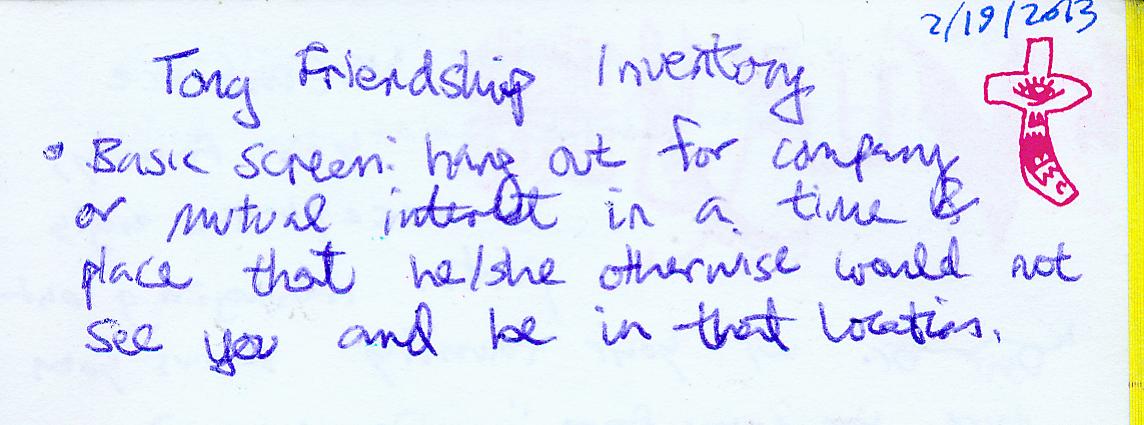 2/19/2013
Tong Friendship Inventory
• Basic screen: hang out for company
or mutual interest in a time &
place that he/she otherwise would not
see you and be in that location.